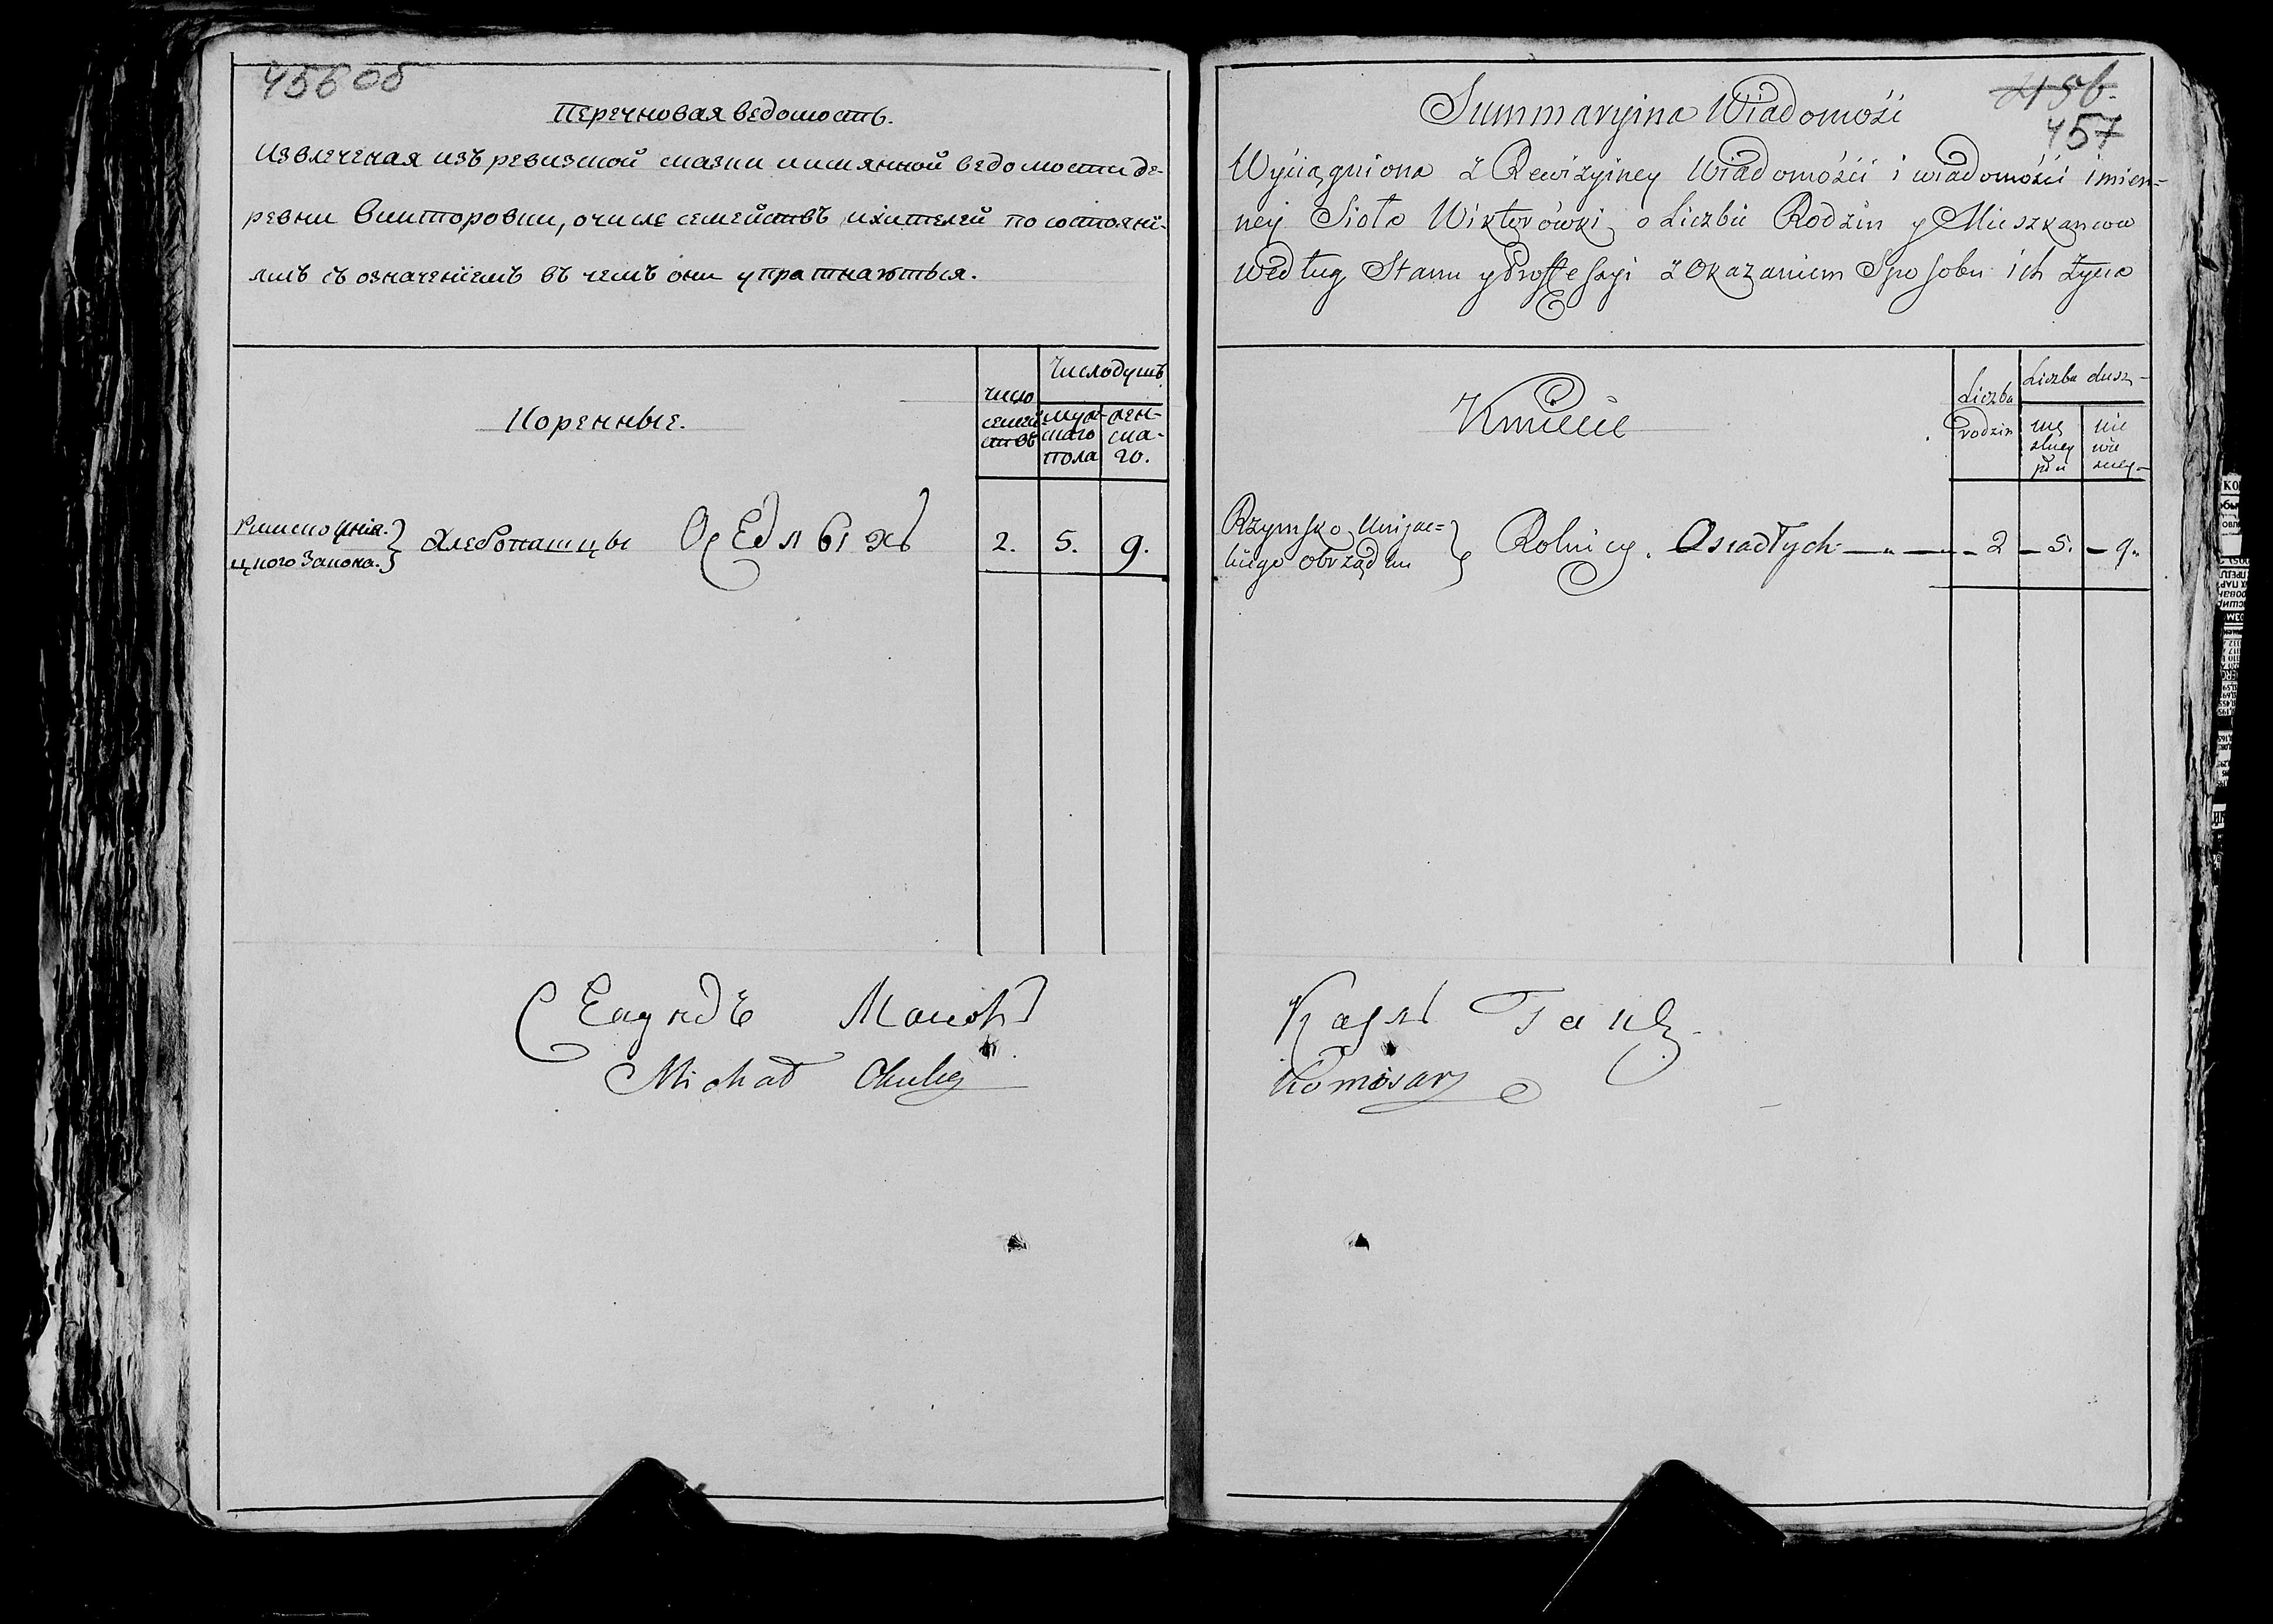 456 об
Перечновая ведомость.
Извлеченая изъ ревизской сказки иимянной ведомости де-
ревни Викторовки, очисле семействъ ижителей по состояні-
ямъ съ означеніемъ въ чемъ они упратнаються.
Коренные.
число семей-ствъ
Число душъ
муж-скаго пола
жен-ска-го.
Римско уніа-
цкого Закона.} Хлебопашцы Оседлыхъ 2. 5. 9.
Michał
456.
457
Summaryina Wiadomość
Wyciągniona z Rewizyiney Wiadomości i wiadomości imien=
ney Sioła Wiktorówki o Liczbie Rodzin y Mieszkancow
według Stanu y Proffessyi z Okazaniem Sposobu ich życia
Kmiecie
Liczba rodzin
Liczba dusz
mę zkiey płci
nie wie sciey
Rzymsko Unijac=
kiego obrządku } Rolnicy. Osiadłych 2 5. 9.
Карлъ
Komisarz